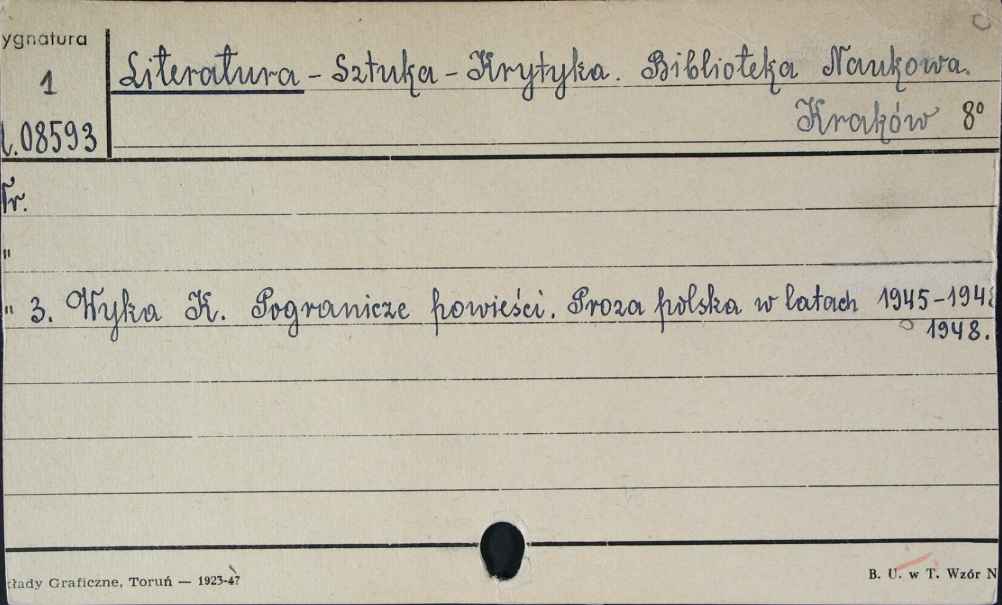 ygnatura
1
Literatura - Sztuka - Krytyka. Biblioteka Naukowa.
Kraków 8°
l.08593
Nr.
"
" 3. Wyka K. Pogranicze powieści. Proza polska w latach 1945-1948
1948.
kłady Graficzne, Toruń — 1923-47
B. U. w T. Wzór N